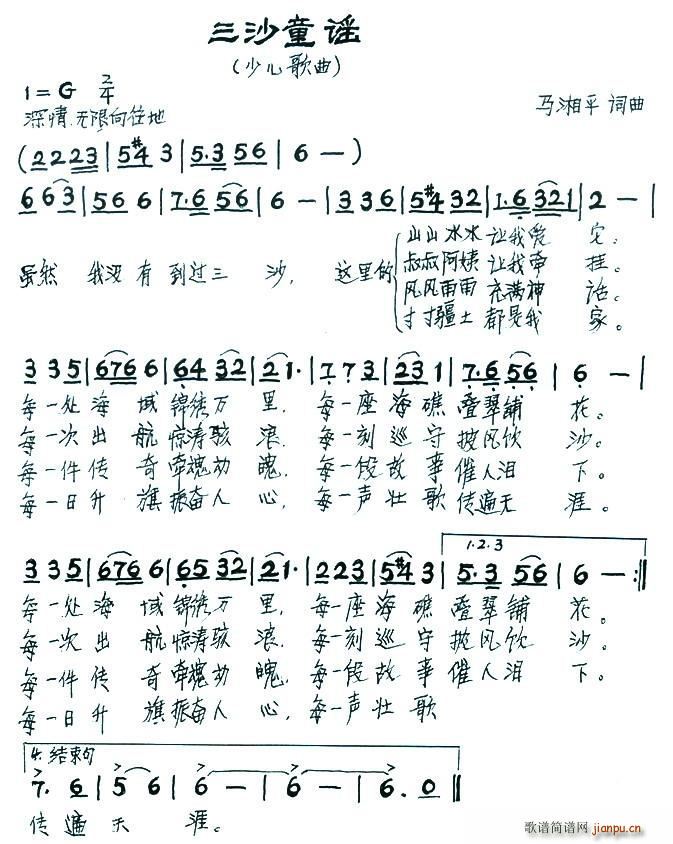 三沙童谣
(少儿歌曲)
1=G 2/4
深情、无限向往地
马湘平 词曲
(2 2 2 3 | 5 #4 3 | 5·3 5 6 | 6 — )
6 6 3 | 5 6 6 | 7·6 6 2 | 6 — | 3 3 6 | 5 #4 3 2 | 1·6 3 2 1 | 2 — |
虽然 我没有到过三沙, 这里的
山山水水让我爱它。
叔叔阿姨让我牵挂。
风风雨雨充满神话。
寸寸疆土都是我家。
3 3 5 | 6 7 6 6 | 6 4 3 2 | 2 1· | 7 7 3 | 2 3 1 | 7·6 5 5 | 6 — |
每一处海域锦绣万里, 每一座海礁叠翠铺花。
每一次出航惊涛骇浪, 每一刻巡守披风饮沙。
每一件传奇牵魂动魄, 每一段故事催人泪下。
每一日升旗振奋人心, 每一声壮歌传遍天涯。
1.2.3
3 3 5 | 6 7 6 6 | 6 5 3 2 | 2 1· | 2 2 3 | 5 #4 3 | 5·3 5 6 | 6 — :||
每一处海域锦绣万里, 每一座海礁叠翠铺花。
每一次出航惊涛骇浪, 每一刻巡守披风饮沙。
每一件传奇牵魂动魄, 每一段故事催人泪下。
每一日升旗振奋人心, 每一声壮歌
4. 结束句
7· 6 | 5 6 | 6 — | 6 — | 6·0 ||
传遍天涯。
歌谱简谱网
jianpu.cn